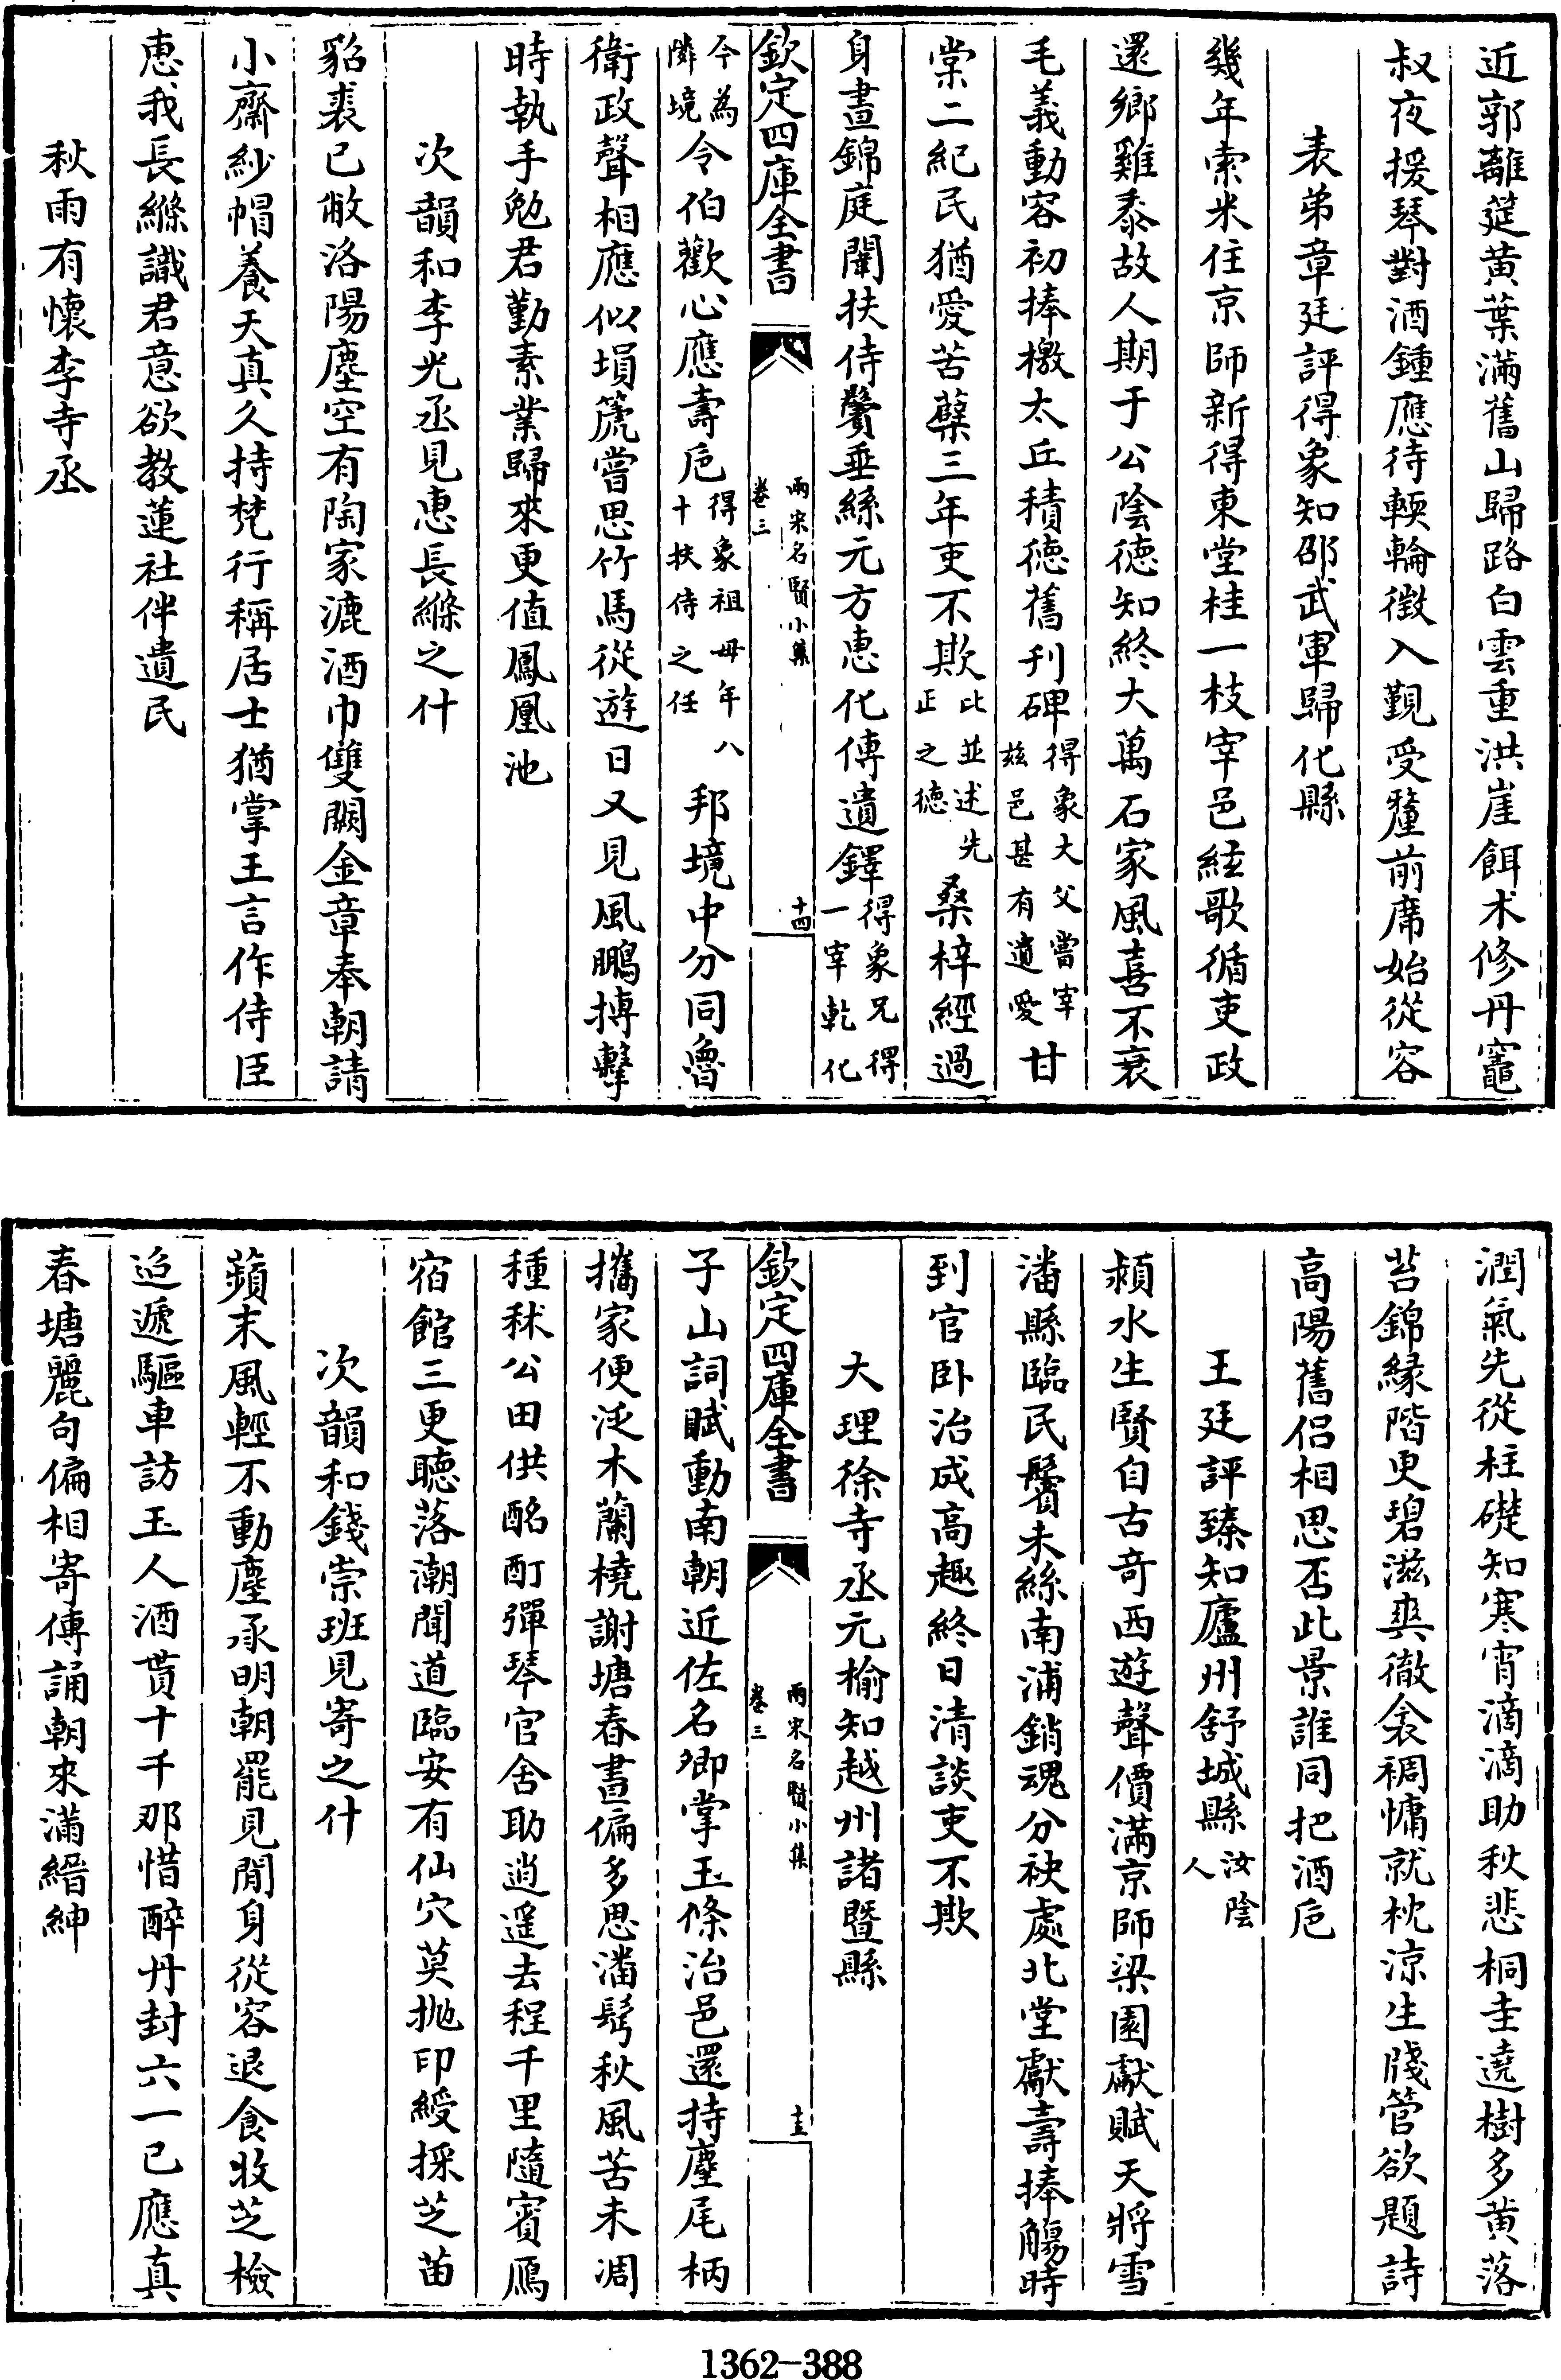 近郭離筵黃葉滿舊山歸路白雲重洪崖餌术修丹竈
叔夜援琴對酒鍾應待輭輪徴入覲受釐前席始從容
表弟章廷評得象知邵武軍歸化縣
幾年索米住京師新得東堂桂一枝宰邑絃歌循吏政
還鄉雞黍故人期于公陰徳知終大萬石家風喜不衰
毛義動容初捧檄太丘積徳舊刋碑得象大父嘗宰兹邑甚有遺愛甘
棠二紀民猶愛苦蘗三年吏不欺此並述先正之徳桑梓經過
身晝錦庭闈扶侍鬢垂絲元方惠化傳遺鐸得象兄得一宰乾化
欽定四庫全書
兩宋名賢小集
卷三
十四
今為隣境令伯歡心應壽巵得象祖母年八十扶侍之任邦境中分同魯
衛政聲相應似塤篪嘗思竹馬從遊日又見風鵬搏擊
時執手勉君勤素業歸來更值鳳凰池
次韻和李光丞見惠長縧之什
貂裘已敝洛陽塵空有陶家漉酒巾雙闕金章奉朝請
小齋紗帽養天真久持梵行稱居士猶掌王言作侍臣
惠我長縧識君意欲教蓮社伴遺民
秋雨有懷李寺丞
潤氣先從柱礎知寒宵滴滴助秋悲桐圭遶樹多黃落
苔錦緣階更碧滋爽徹衾裯慵就枕涼生牋管欲題詩
高陽舊侣相思否此景誰同把酒巵
王廷評臻知廬州舒城縣汝陰人
潁水生賢自古奇西遊聲價滿京師梁園獻賦天將雪
潘縣臨民鬢未絲南浦銷魂分袂處北堂獻壽捧觴時
到官卧治成高趣終日清談吏不欺
大理徐寺丞元榆知越州諸暨縣
欽定四庫全書
兩宋名賢小集
卷三
十五
子山詞賦動南朝近佐名卿掌玉條治邑還持麈尾柄
攜家便泛木蘭橈謝塘春晝偏多思潘髩秋風苦未凋
種秫公田供酩酊彈琴官舍助逍遥去程千里隨賓鴈
宿館三更聽落潮聞道臨安有仙穴莫抛印綬採芝苗
次韻和錢崇班見寄之什
蘋末風輕不動塵承明朝罷見閒身從容退食收芝檢
迢遞驅車訪玉人酒貰十千那惜醉丹封六一已應真
春塘麗句偏相寄傳誦朝來滿縉紳
1362-388